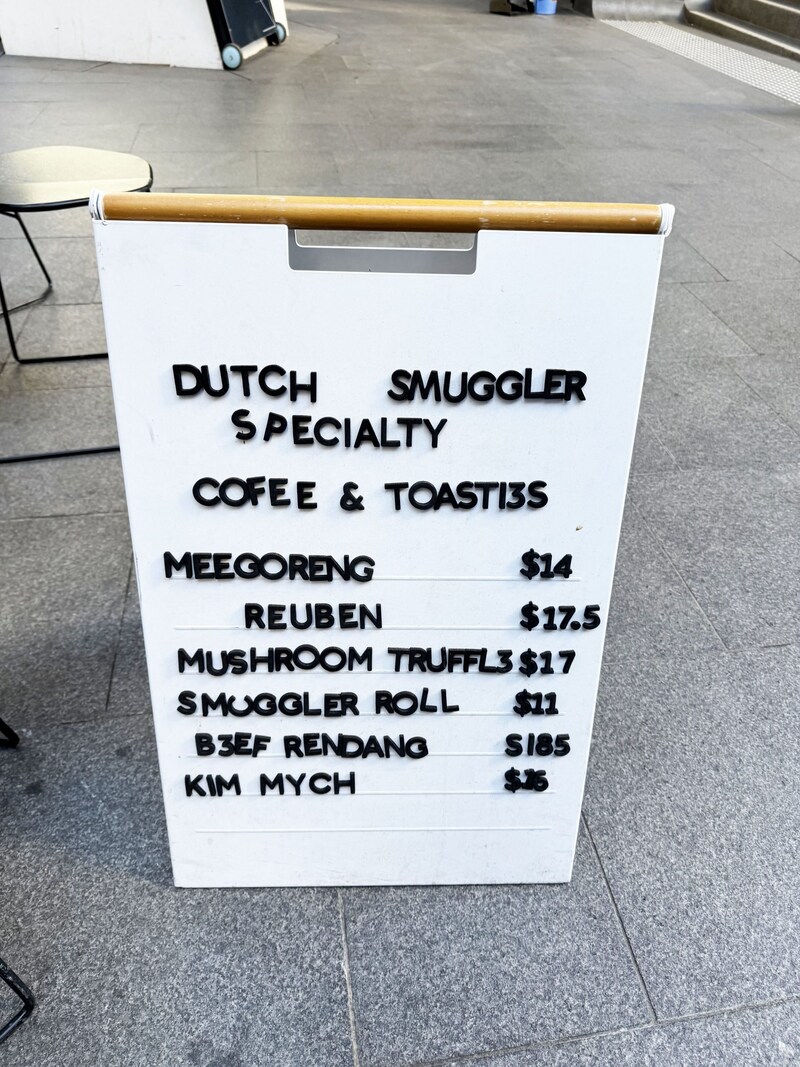 DUTCH SMUGGLER
SPECIALTY
COFEE & TOASTI3S
MEEGORENG $14
REUBEN $17.5
MUSHROOM TRUFFL3 $17
SMUGGLER ROLL $11
B3EF RENDANG S185
KIM MYCH